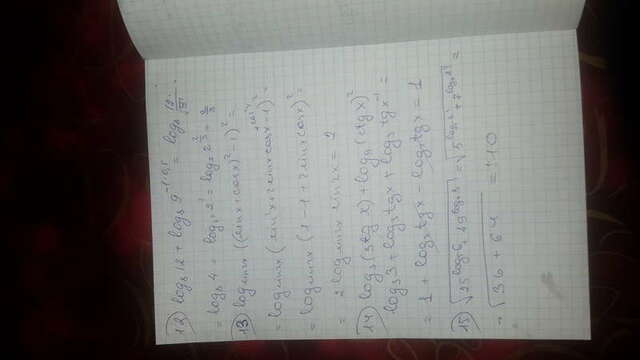 12) log₈ 12 + log₈ 9^(-0,5) = log₈ √
= log₈ 4 = log₂³ 2² = log₂ 2^(2/3) = 2/3
13) log sin2x ((sinx + cosx)² - 1)² =
= log sin2x (sin²x + 2 sinx cosx + cos²x - 1)² =
= log sin2x (1 - 1 + 2 sinx cosx)² =
= 2 log sin2x sin2x = 2
14) log₃(3tg x) + log₉(ctg x)²
log₃3 + log₃tgx + log₃tgx⁻¹ =
= 1 + log₃tgx - log₃tgx = 1
15) =
= √36 + 64 = 10